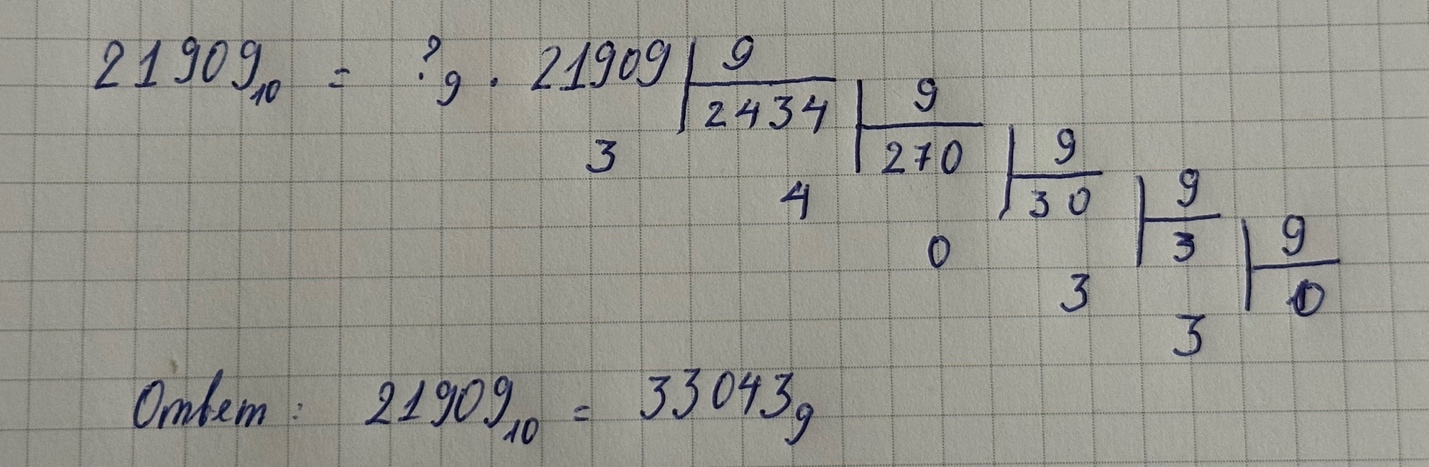 21909₁₀ = ?₉. 21909 | 9
3 2434 | 9
4 270 | 9
0 30 | 9
3 3 | 9
3 0
Ответ: 21909₁₀ = 33043₉